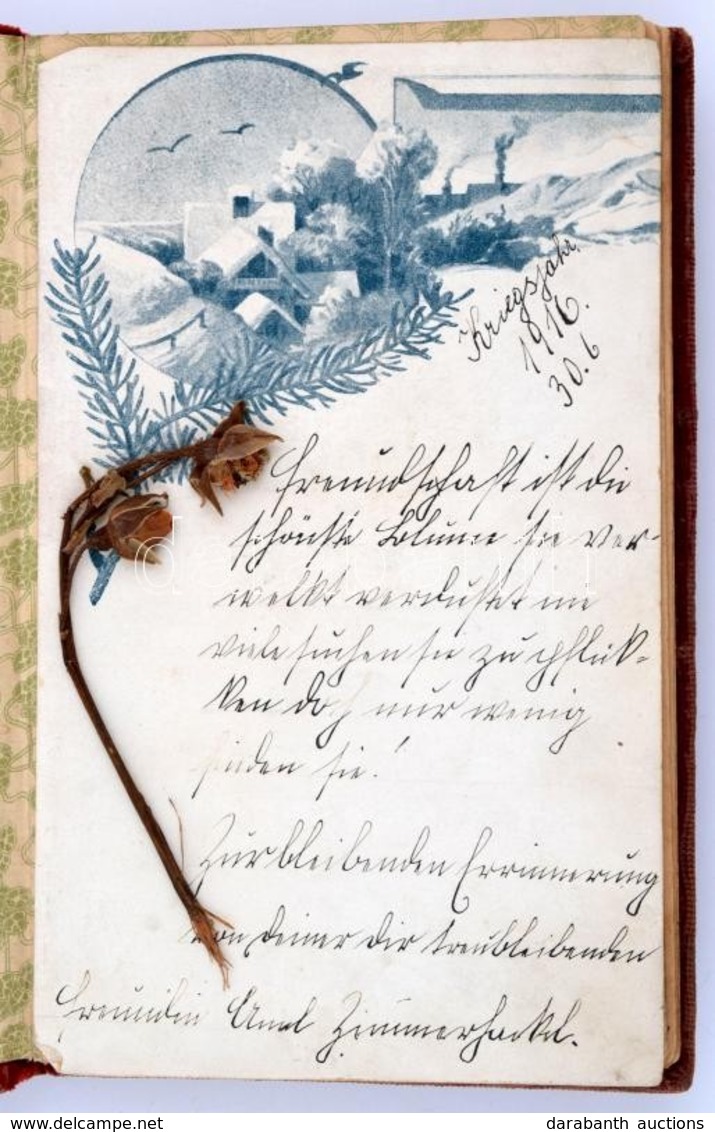 Kriegsjahr
1916.
30.6
Freundschaft ist die
schönste Blume sie ver-
welkt verduftet nie
viele suchen sie zu pflük-
ken doch nur wenig
finden sie!
Zur bleibenden Errinnerung
von deiner dir treubleibenden
Freundin Zimmerhackl.
darabanth auctions